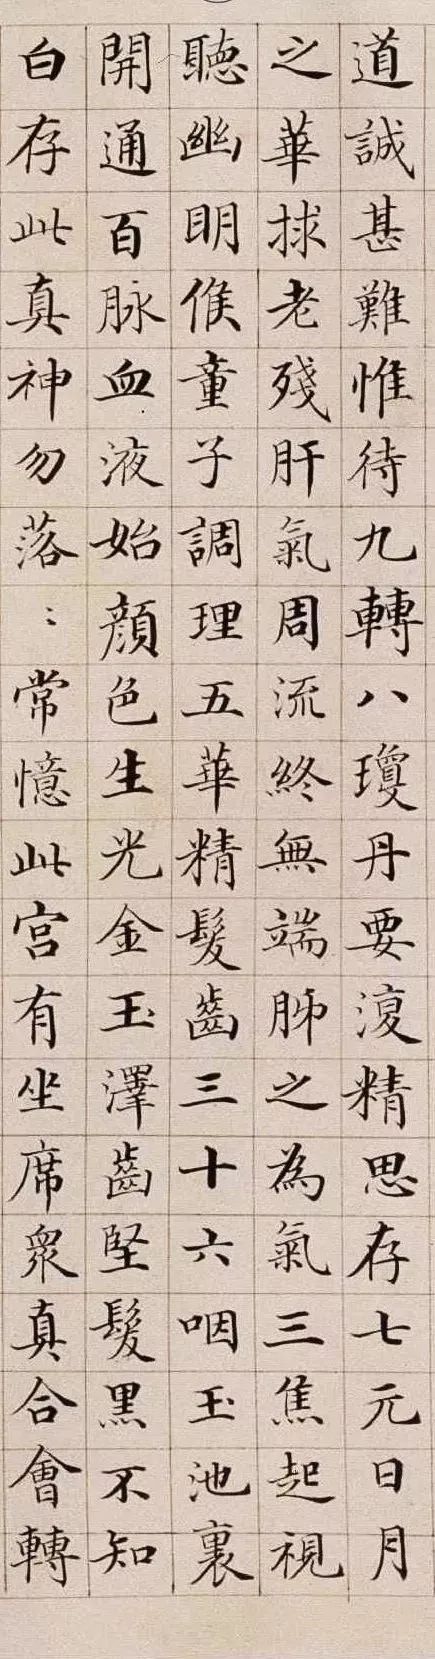 道誠甚難惟待九轉八瓊丹要澓精思存七元日月
之華捄老殘肝氣周流終無端肺之為氣三焦起視
聽幽眀候童子調理五華精髮齒三十六咽玉池裏
開通百脉血液始顔色生光金玉澤齒堅髮黒不知
白存此真神勿落〻常憶此宮有坐席衆真合會轉